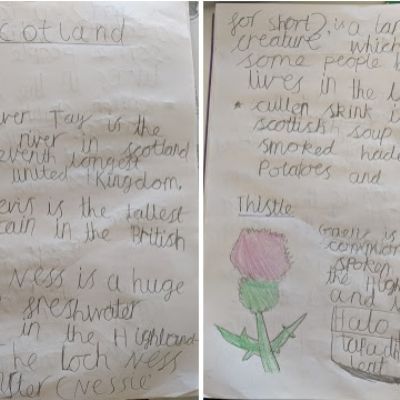 cotland
ver Tay is the
river in scotland
eventh longest
united Kingdom.
evis is the tallest
ain in the British
Ness is a huge
freshwater
in the Highland
The Loch Ness
ster (Nessie
for short), is a lar
creature which
some people b
lives in the L
* cullen skink i
scottish soup
smoked hadd
potatoes and
Thistle
Gaelic is
common
spoken
the High
and
Halo